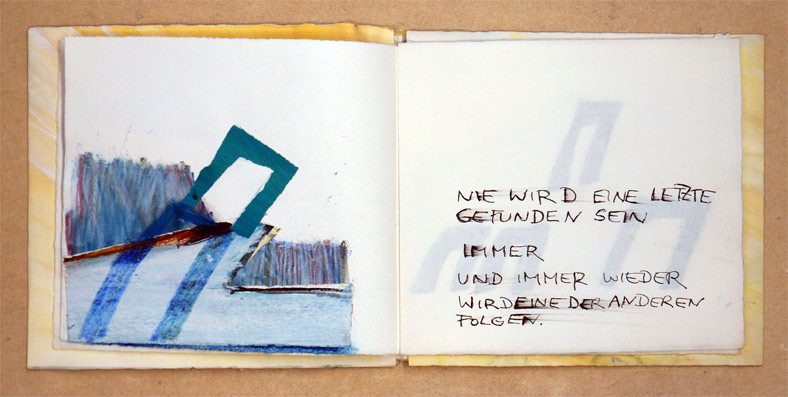 NIE WIRD EINE LETZTE
GEFUNDEN SEIN
IMMER
UND IMMER WIEDER
WIRD EINE DER ANDEREN
FOLGEN.